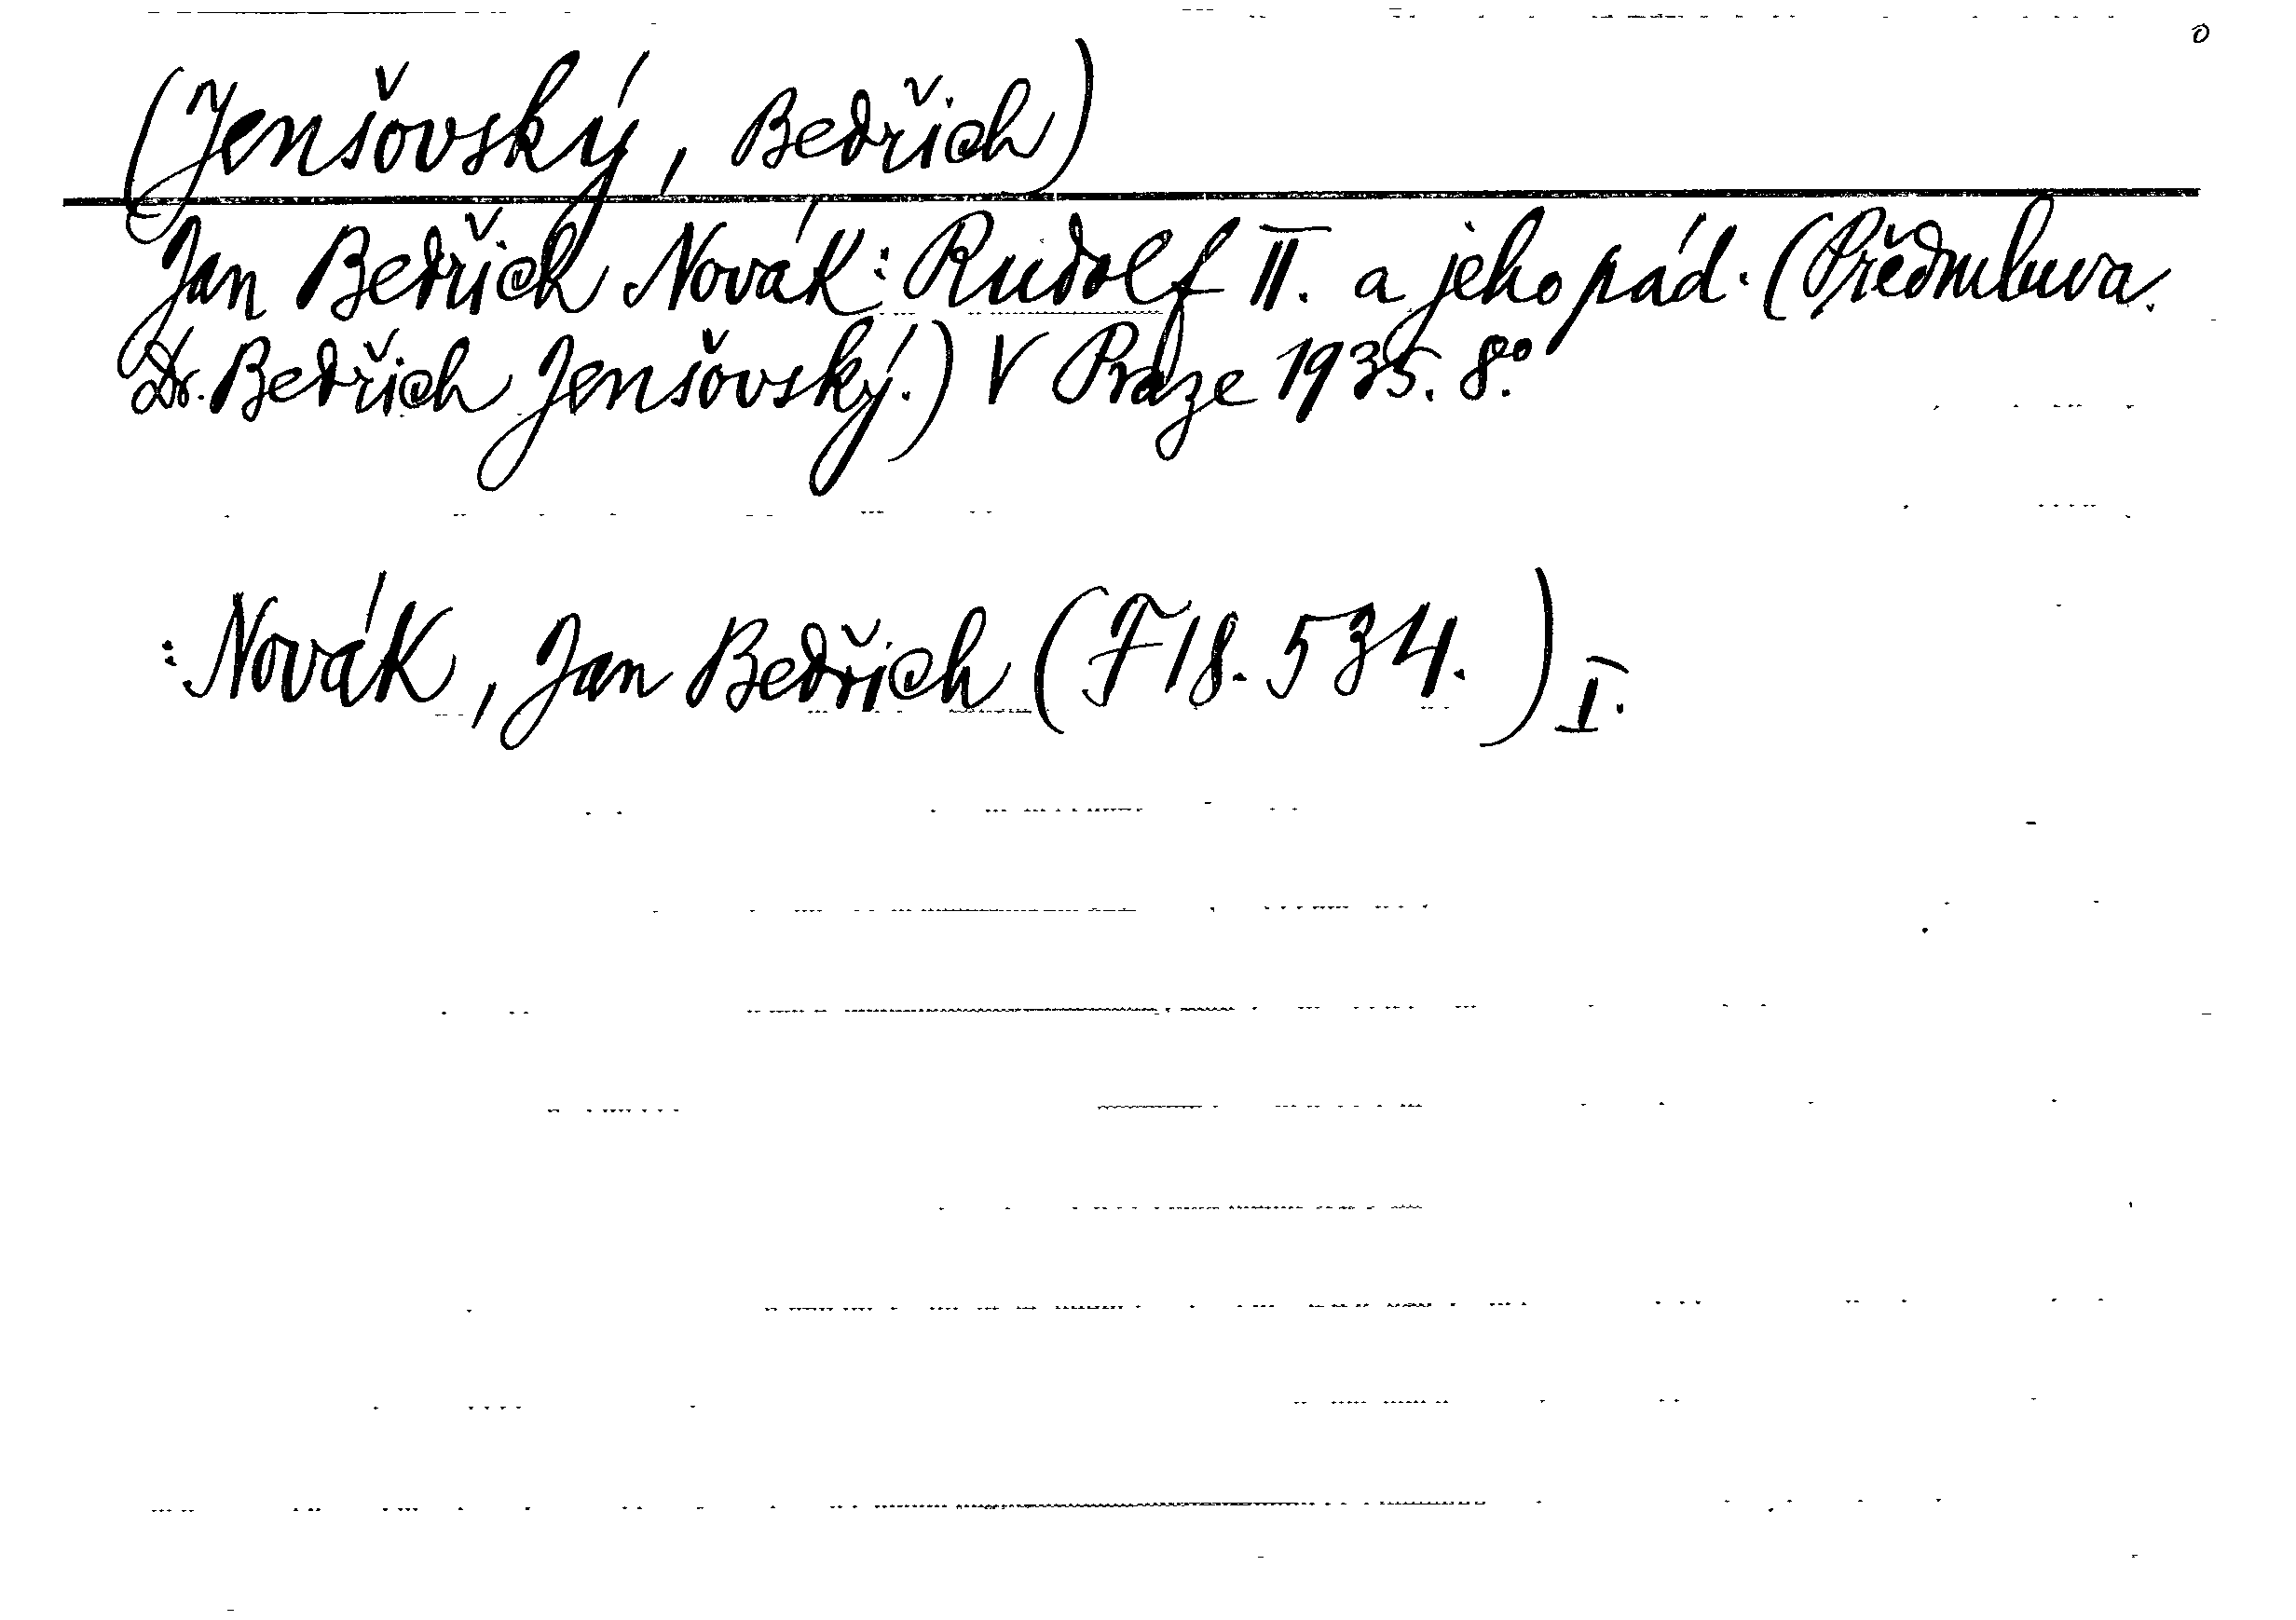 (Jenšovský, Bedřich)
Jan Bedřich Novák: Rudolf II. a jeho pád. (Předmluva.
Dr. Bedřich Jenšovský.) V Praze 1935. 8.°
: Novák, Jan Bedřich (F 18. 534.) I.